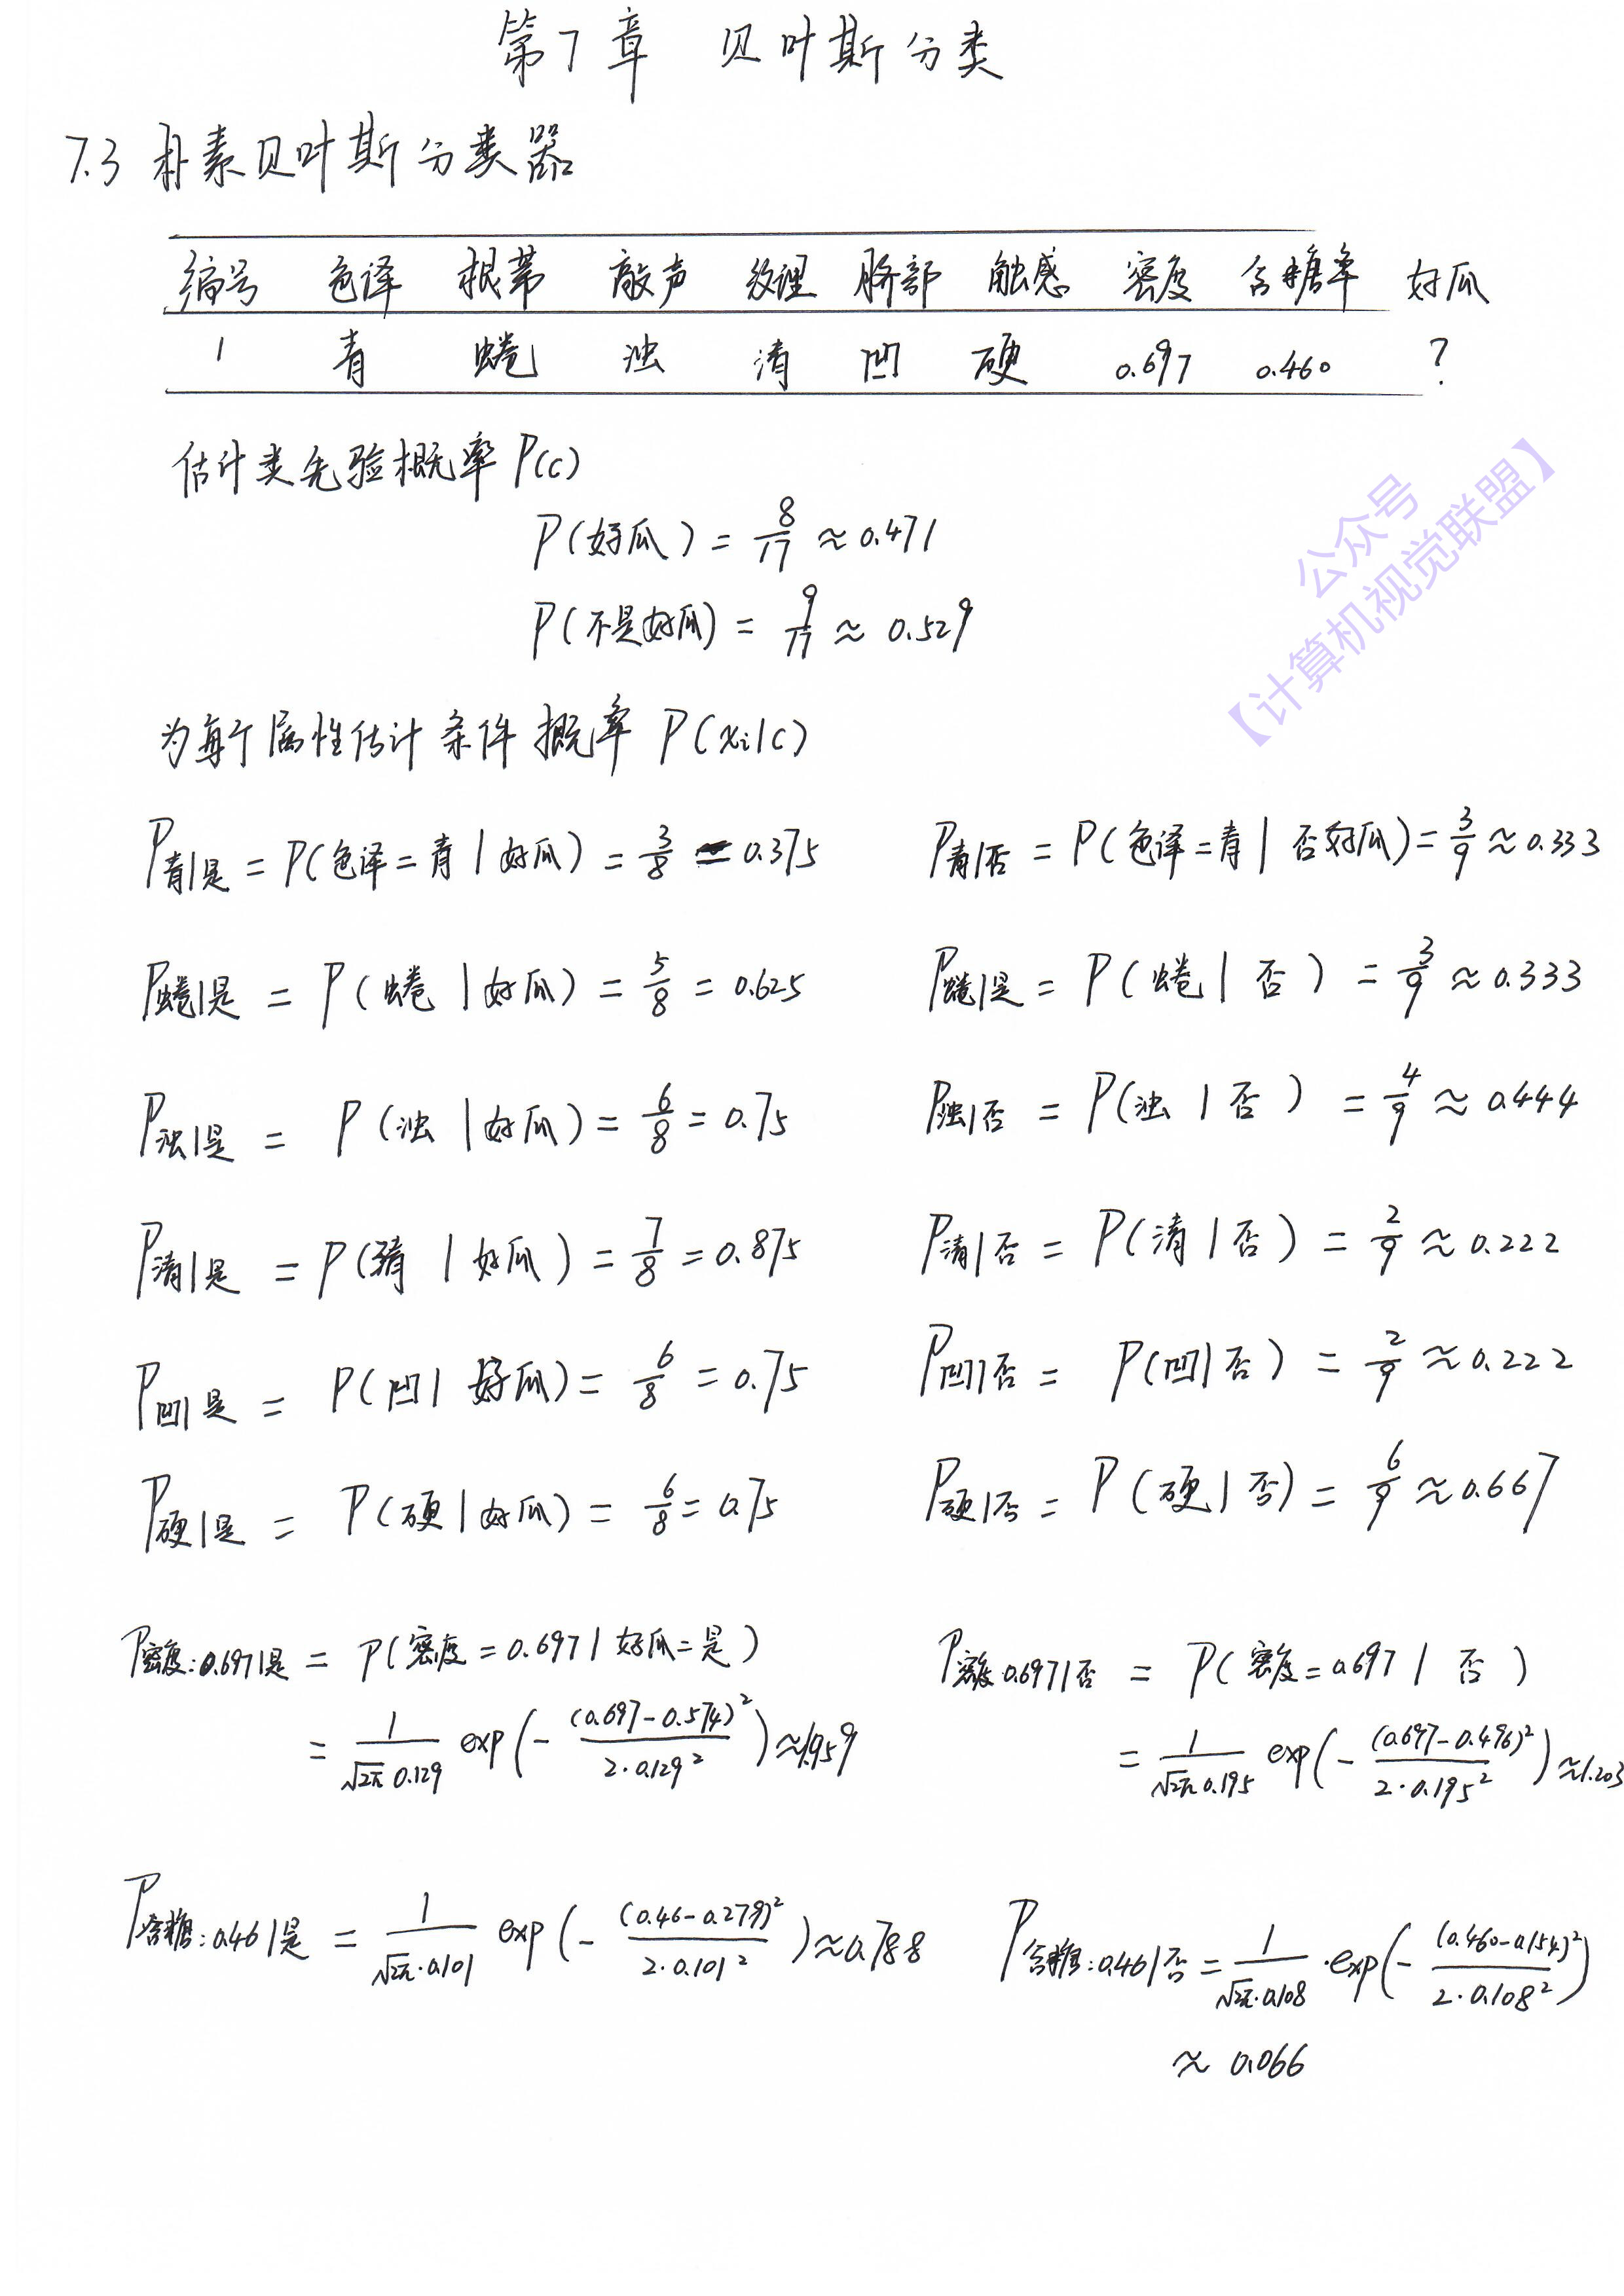 第7章 贝叶斯分类
7.3 朴素贝叶斯分类器
编号 色泽 根蒂 敲声 纹理 脐部 触感 密度 含糖率 好瓜
1 青 蜷 浊 清 凹 硬 0.697 0.460 ?
估计类先验概率 P(c)
P(好瓜) = 8/17 ≈ 0.471
P(不是好瓜) = 9/17 ≈ 0.529
为每个属性估计条件概率 P(xi|c)
P青|是 = P(色泽=青|好瓜) = 3/8 = 0.375 P青|否 = P(色泽=青|否好瓜) = 3/9 ≈ 0.333
P蜷|是 = P(蜷|好瓜) = 5/8 = 0.625 P蜷|是 = P(蜷|否) = 3/9 ≈ 0.333
P浊|是 = P(浊|好瓜) = 6/8 = 0.75 P浊|否 = P(浊|否) = 4/9 ≈ 0.444
P清|是 = P(清|好瓜) = 7/8 = 0.875 P清|否 = P(清|否) = 2/9 ≈ 0.222
P凹|是 = P(凹|好瓜) = 6/8 = 0.75 P凹|否 = P(凹|否) = 2/9 ≈ 0.222
P硬|是 = P(硬|好瓜) = 6/8 = 0.75 P硬|否 = P(硬|否) = 6/9 ≈ 0.667
P密度:0.697|是 = P(密度=0.697|好瓜=是) P密度0.697|否 = P(密度=0.697|否)
= 1/(√2π 0.129) exp(-(0.697-0.574)²/(2·0.129²)) ≈ 1.959 = 1/(√2π 0.195) exp(-(0.697-0.496)²/(2·0.195²)) ≈ 1.203
P含糖:0.46|是 = 1/(√2π·0.101) exp(-(0.46-0.279)²/(2·0.101²)) ≈ 0.788 P含糖:0.46|否 = 1/(√2π·0.108)·exp(-(0.460-0.154)²/(2·0.108²))
≈ 0.066
公众号
【计算机视觉联盟】